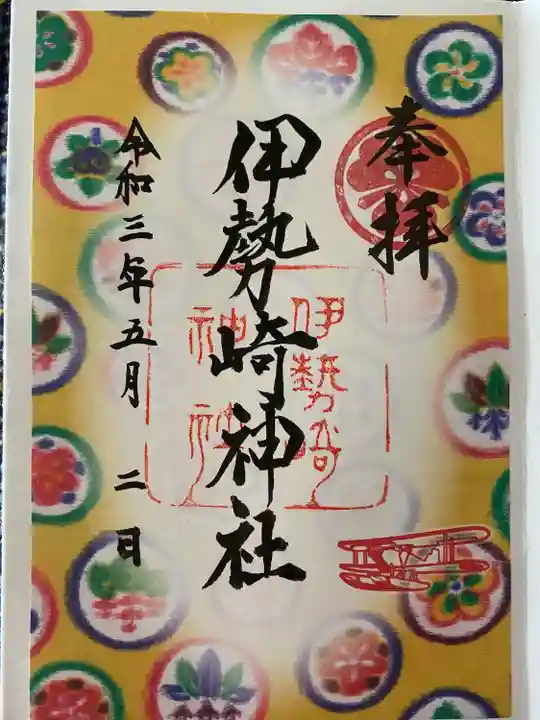 奉拝
伊勢崎神社
伊勢崎
神社
令和三年五月 二日